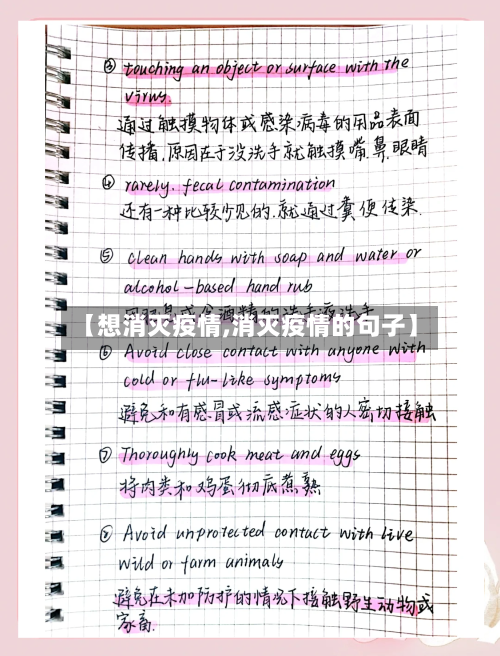 ③ touching an object or surface with the
virus.
通过触摸物体或感染病毒的用品表面
传播,原因在于没洗手就触摸嘴.鼻.眼睛
④ rarely. fecal contamination
还有一种比较少见的.就通过粪便传染.
⑤ clean hands with soap and water or
alcohol-based hand rub
【想消灭疫情,消灭疫情的句子】
⑥ Avoid close contact with anyone with
cold or flu-like symptoms
避免和有感冒或流感症状的人密切接触
⑦ Thoroughly cook meat and eggs
将肉类和鸡蛋彻底煮熟
⑧ Avoid unprotected contact with live
wild or farm animals
避免在未加防护的情况下接触野生动物或
家畜.